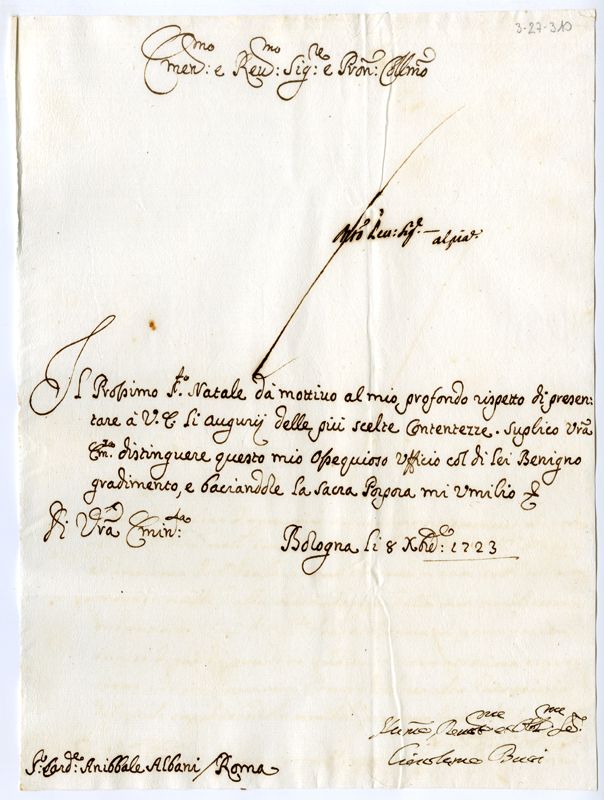 3-27-310
Emen:mo e Reu:mo Sig:re e Pron: Collmo
al pia:
Il Prossimo S:to Natale dà mottiuo al mio profondo rispetto di presen:
tare à V. E. li Augurij delle più scelte Contentezze. Suplico Vra
Em:za distinguere questo mio Ossequioso Ufficio col di Lei Benigno
gradimento, e baciandole la Sacra Porpora mi Umilio
Di Vra Emin:za
Bologna li 8 Xbre: 1723
Girolamo Bugi
S:r Card:le Anibbale Albani / Roma